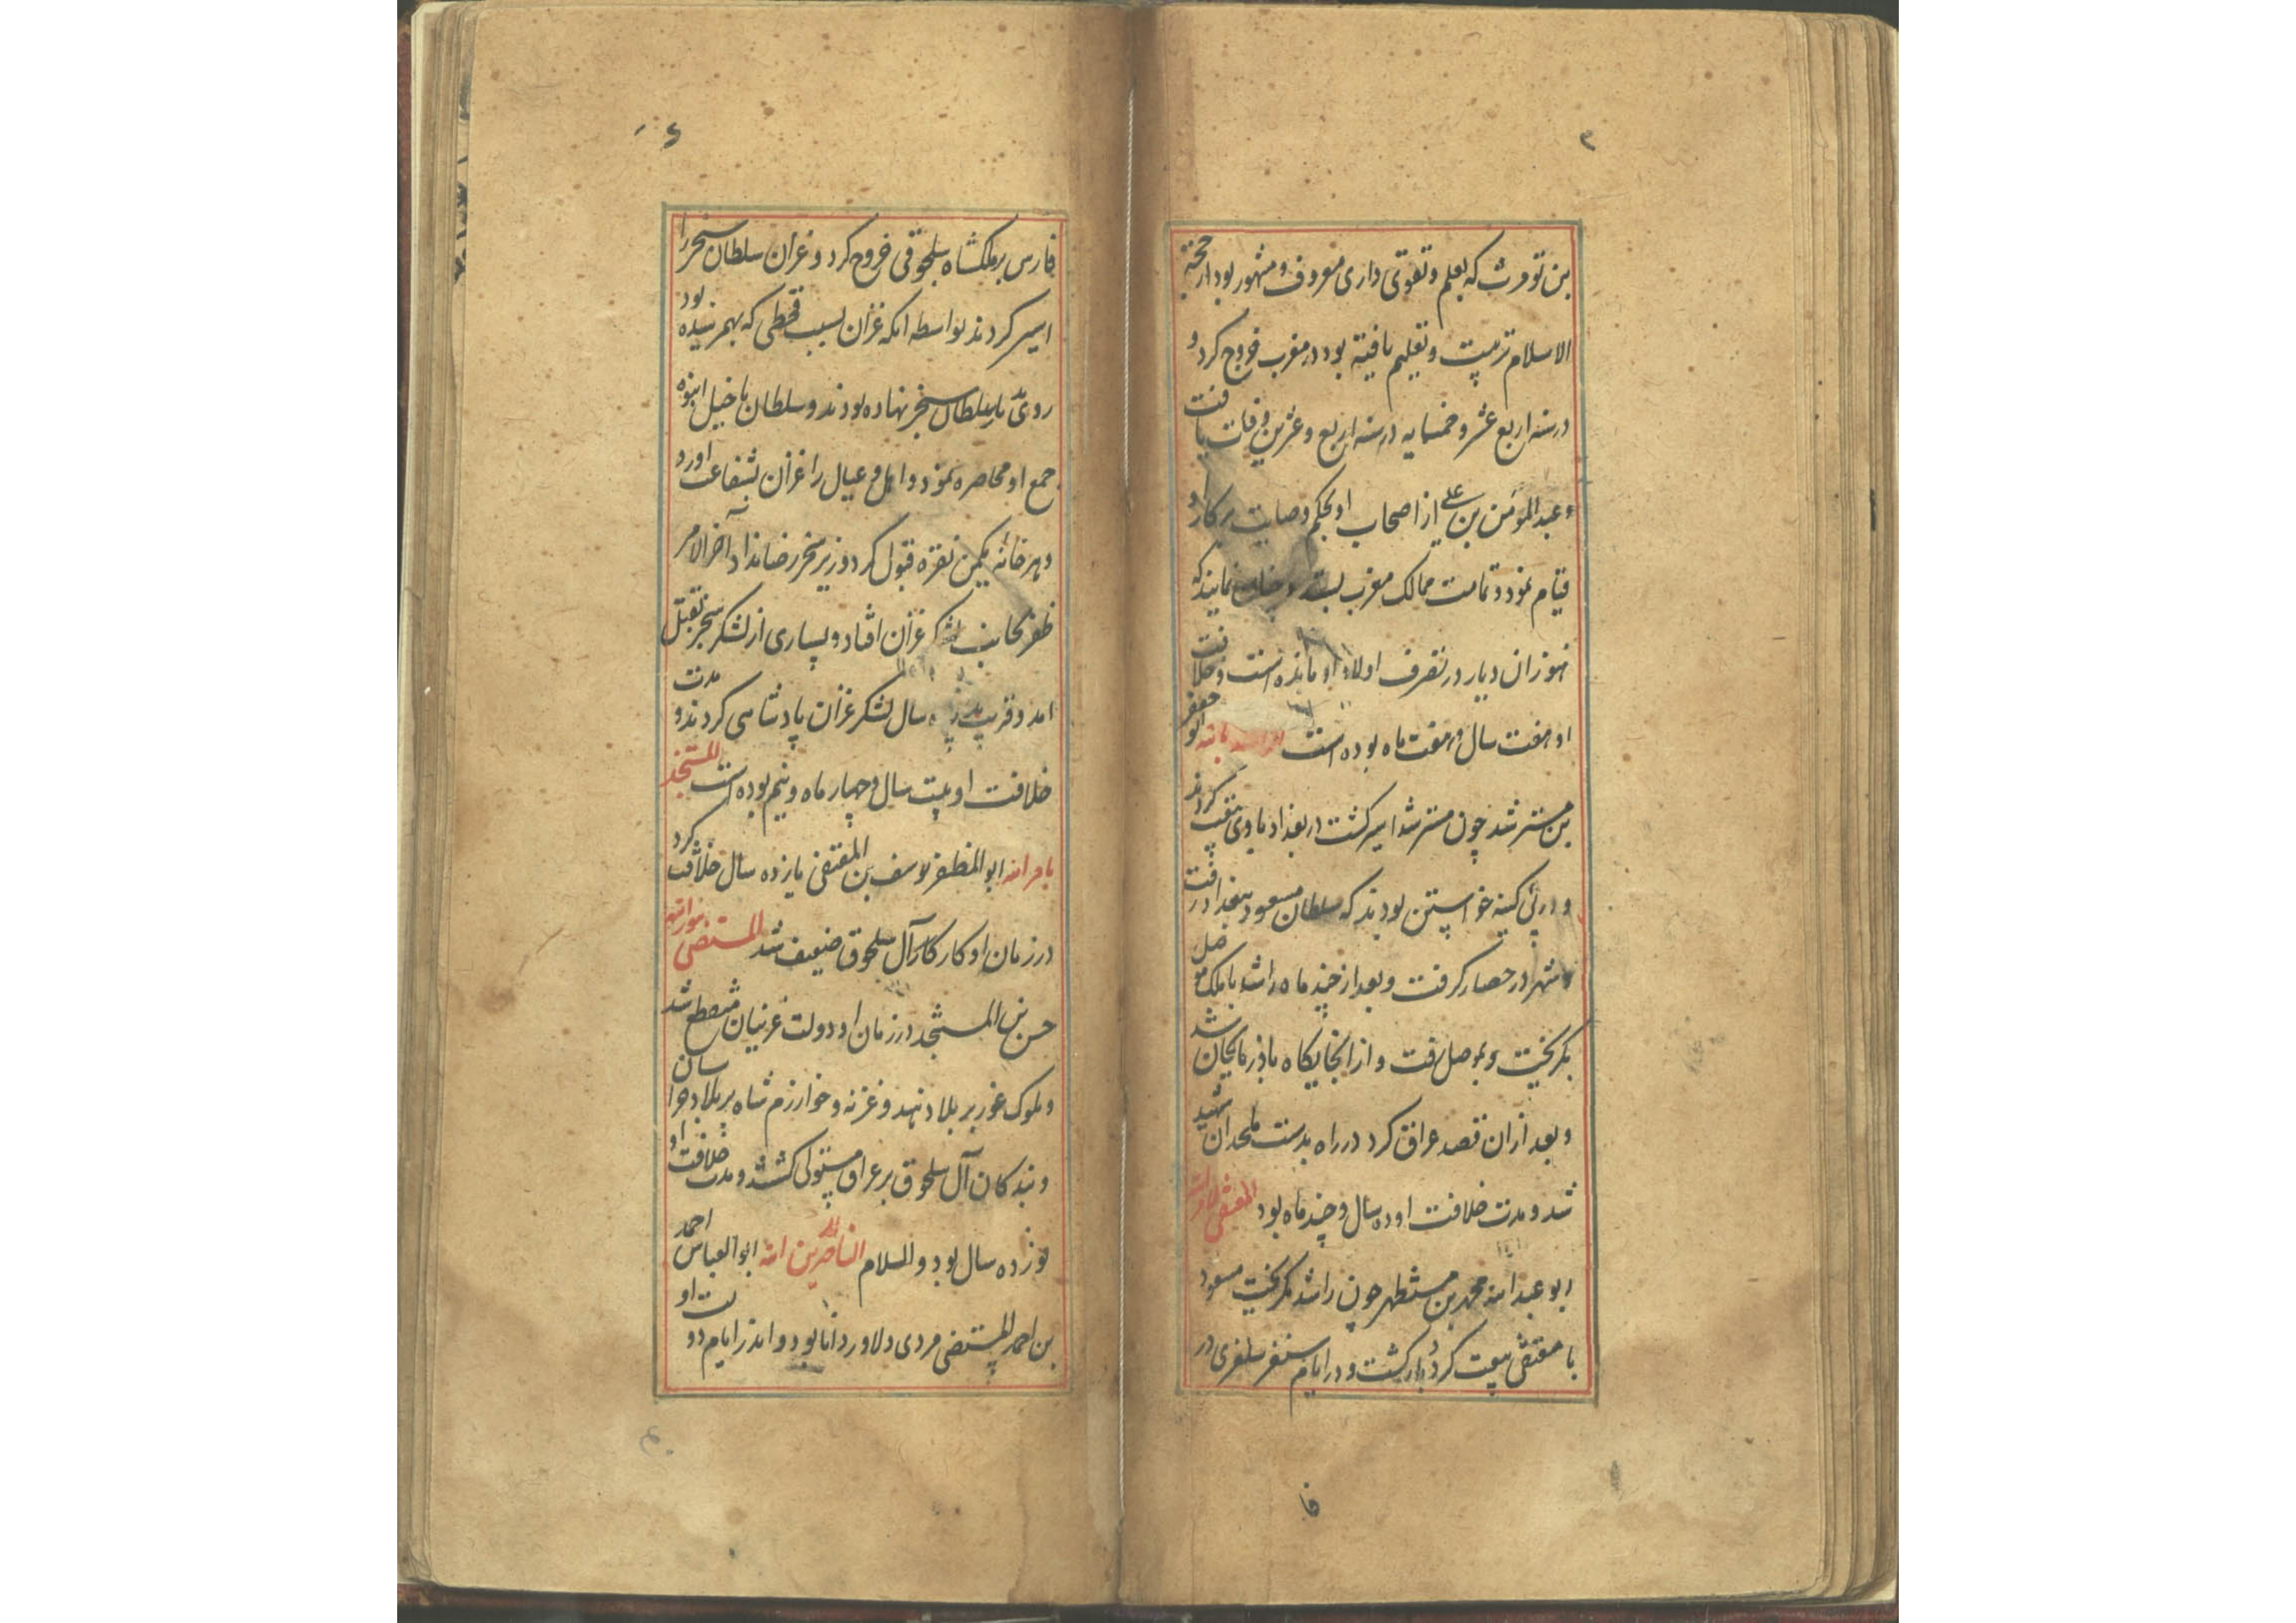 بن تومرت که بعلم و تقوی داری معروف و مشهور بود از حجة
الاسلام تربیت و تعلیم یافته بود در مغرب خروج کرد و
در سنه اربع عشر و خمسمایه در سنه اربع و عشرین وفات یافت
و عبدالمومن بن علی از اصحاب او بحکم وصایت بر کار او
قیام نمود و تمامت ممالک مغرب بستد و چنان نمایند که
هنوز ان دیار در تصرف اولاد او مانده است و خلافت
او هفت سال و هفت ماه بوده است الراشد بالله ابو جعفر
بن مسترشد چون مسترشد اسیر کشت در بغداد با وی بیعت کردند
و در پی کینه خواستن بودند که سلطان مسعود ببغداد رفت
و شهر در حصار کرفت و بعد از چند ماه راشد با ملک موصل
بکریخت و بموصل رفت و از انجایکاه باذربایجان شد
و بعد ازان قصد عراق کرد در راه بدست ملحدان شهید
شد و مدت خلافت او ده سال و چند ماه بود المقتفی لامرالله
ابو عبدالله محمد بن مستظهر چون راشد بکریخت مسعود
با مقتفی بیعت کرد و بازکشت و در ایام سنقر سلغری در
فا
فارس بر ملکشاه سلجوقی خروج کرد و غزان سلطان سنجر را
اسیر کردند بواسطه انکه غزان بسبب قحطی که بهم رسیده بود
روی بدیار سلطان سنجر نهاده بودند و سلطان با خیل انبوه
جمع او محاصره نمود و اهل و عیال را غزان بشفاعت اورد
و هر خانه یکمن نقره قبول کرد وزیر سنجر رضا نداد آخر الامر
ظفر بجانب لشکر غزان افتاد و بسیاری از لشکر سنجر بقتل
امد و قریب سال لشکر غزان پادشاهی کردند و مدت
خلافت او بیست سال و چهار ماه و نیم بوده است المستنجد
بامرالله ابوالمظفر یوسف بن المقتفی یازده سال خلافت کرد
در زمان او کار کار آل سلجوق ضعیف شد المستضی بنورالله
حسن بن المستنجد در زمان او دولت غزنیان منقطع شد
و ملوک غور بر بلاد هند و غزنه و خوارزم شاه بر بلاد خراسان
و بندکان آل سلجوق بر عراق مستولی کشتند و مدت خلافت او
نوزده سال بود والسلام الناصر لدین الله ابوالعباس احمد
بن احمد المستضی مردی دلاور و دانا بود و اندر ایام دولت او